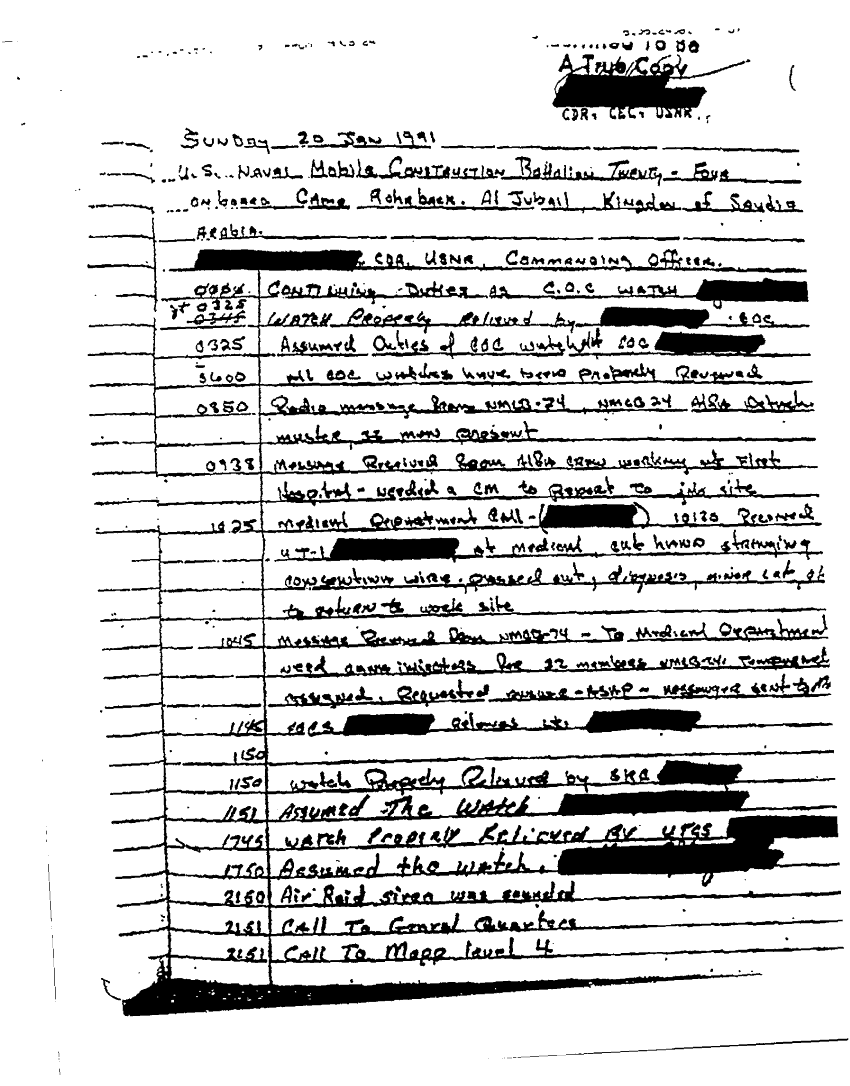 TO BE
A True Copy
CDR, CEC, USNR
SUNDAY 20 JAN 1991
U.S. NAVAL Mobile CONSTRUCTION Battalion Twenty-Four
on board Camp Rohrbach. Al Jubail, Kingdom of Saudia
Arabia.
CDR, USNR, COMMANDING OFFICER.
CONTINUING Duties as C.O.C WATCH
0325
0345 WATCH Properly Relieved by COC
0325 Assumed Duties of COC watch COC
All COC watches have been properly
0850 Radio message from NMCB-74, NMCB 24 Alfa Detach
muster, 22 men present
0938 Message Received from Alfa crew working at Fleet
Hospital - needed a CM to Report to job site
1025 Medical Department Call - ( ) Received
UT-1 at medical, cut hand stringing
wire. passed out, diagnosis, minor cut, ok
to return to work site
1045 Message Received from NMCB-74 - To Medical Department
need injectors for 22 members NMCB-24
assigned. Requested - ASAP - messenger sent to
1145 Relieves
1150
1150 watch Properly Relieved by SK2
1151 Assumed The Watch
1745 watch Properly Relieved By
1750 Assumed the watch.
2150 Air Raid siren was sounded
2151 Call To Genral Quarters
2151 Call To Mopp level 4